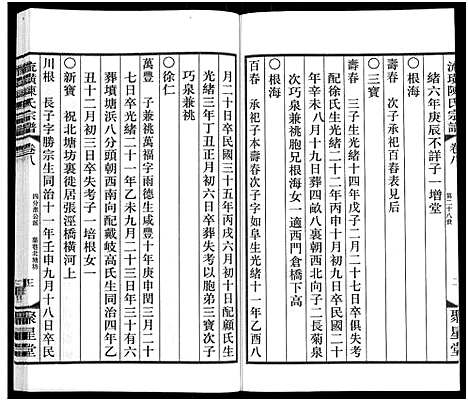 流璜陳氏宗譜 卷八
第二十八世
緒六年庚辰不詳子一增堂
○根海
壽春 三子生光緒十四年戊子二月二十七日卒俱失考
壽春 承繼子百春表見後
配徐氏生光緒二十二年丙申十月初九日卒民國二十
年辛未八月十九日葬四畝八裏朝西北向子二長菊泉
次巧泉兼祧胞兄根海女一適西門倉橋下高
○根海
百春 承祀子本壽次子字如阜生光緒十一年乙酉八
月二十日卒民國三十五年丙戌六月初十日配顧氏生
光緒三年丁丑正月初六日卒葬失考以胞弟三寶次子
巧泉兼祧
○徐仁
萬豐 子兼祧萬福字雨德生咸豐十年庚申閏三月二十
七日卒光緒二十一年乙未九月二十三日年三十有六
葬墳塘浜八分頭朝西南向配戴歧高氏生同治四年乙
丑十二月初三日失考子一培根女一
○新寶 祝北塘坊裏徙居張涇橋橫河上
川根 長子字勝宗生同治十一年壬申九月十八日卒民
流璜陳氏宗譜 卷八
四分淮公派 葉巷北塘坊
聚星堂
聚星堂